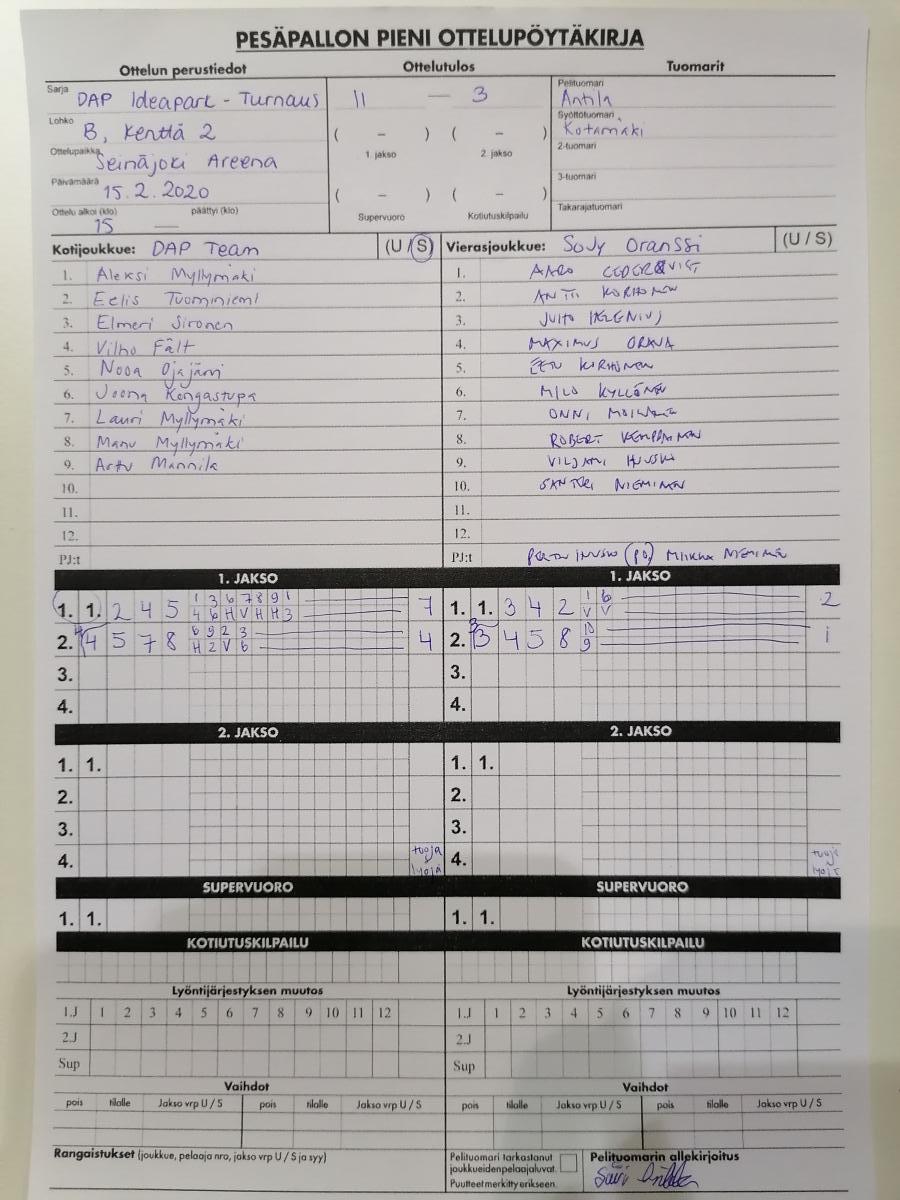 PESÄPALLON PIENI OTTELUPÖYTÄKIRJA
Ottelun perustiedot Ottelutulos Tuomarit
Sarja DAP Ideapark - Turnaus
11 — 3
Pelituomari
Antila
Lohko B, Kenttä 2
( – ) ( – )
1. jakso 2. jakso
Syöttötuomari
Kotamäki
Ottelupaikka Seinäjoki Areena
2-tuomari
Päivämäärä 15.2.2020
( – ) ( – )
3-tuomari
Ottelu alkoi (klo) päättyi (klo)
15 —
Supervuoro Kotiutuskilpailu
Takarajatuomari
Kotijoukkue: DAP Team (U / S) Vierasjoukkue: SoJy Oranssi (U / S)
1. Aleksi Myllymäki 1. AARO CEDERQVIST
2. Eelis Tuominiemi 2. ANTTI KORHONEN
3. Elmeri Sironen 3. JUHO HELENIUS
4. Vilho Fält 4. MAXIMUS ORAVA
5. Nooa Ojajärvi 5. EETU KORHONEN
6. Joona Kangastupa 6. MILO KYLLÖNEN
7. Lauri Myllymäki 7. ONNI
8. Manu Myllymäki 8. ROBERT KEMPPAINEN
9. Arttu Mannila 9. VILJAMI HUSKO
10. 10. SANTERI NIEMINEN
11. 11.
12. 12.
PJ:t PJ:t (PJ) MIIKKA NIEMINEN
1. JAKSO 1. JAKSO
1 3 6 7 8 9 1 1 6
1. 1. 2 4 5 7 1. 1. 3 4 2 2
4 6 H V H H 3 V V
6 9 2 3 10
2. 4 5 7 8 4 2. 3 4 5 8 1
H 2 V 6 9
3. 3.
4. 4.
2. JAKSO 2. JAKSO
1. 1. 1. 1.
2. 2.
3. 3.
4. tuoja 4. tuoja
lyöjä lyöjä
SUPERVUORO SUPERVUORO
1. 1. 1. 1.
KOTIUTUSKILPAILU KOTIUTUSKILPAILU
Lyöntijärjestyksen muutos Lyöntijärjestyksen muutos
1.J 1 2 3 4 5 6 7 8 9 10 11 12 1.J 1 2 3 4 5 6 7 8 9 10 11 12
2.J 2.J
Sup Sup
Vaihdot Vaihdot
pois tilalle Jakso vrp U / S pois tilalle Jakso vrp U / S pois tilalle Jakso vrp U / S pois tilalle Jakso vrp U / S
Rangaistukset (joukkue, pelaaja nro, jakso vrp U / S ja syy)
Pelituomari tarkastanut
joukkueidenpelaajaluvat.
Puutteet merkitty erikseen.
Pelituomarin allekirjoitus